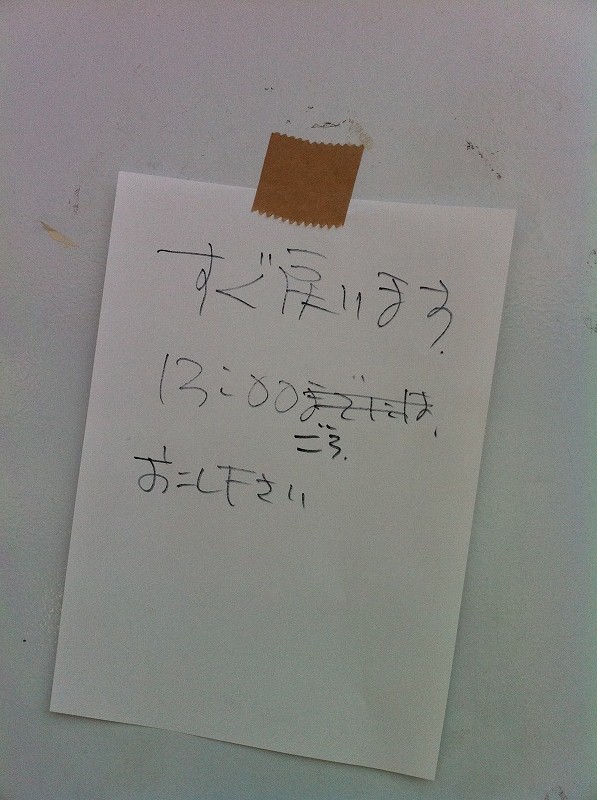 すぐ戻ります.
13:00までには,
ごろ,
おこし下さい